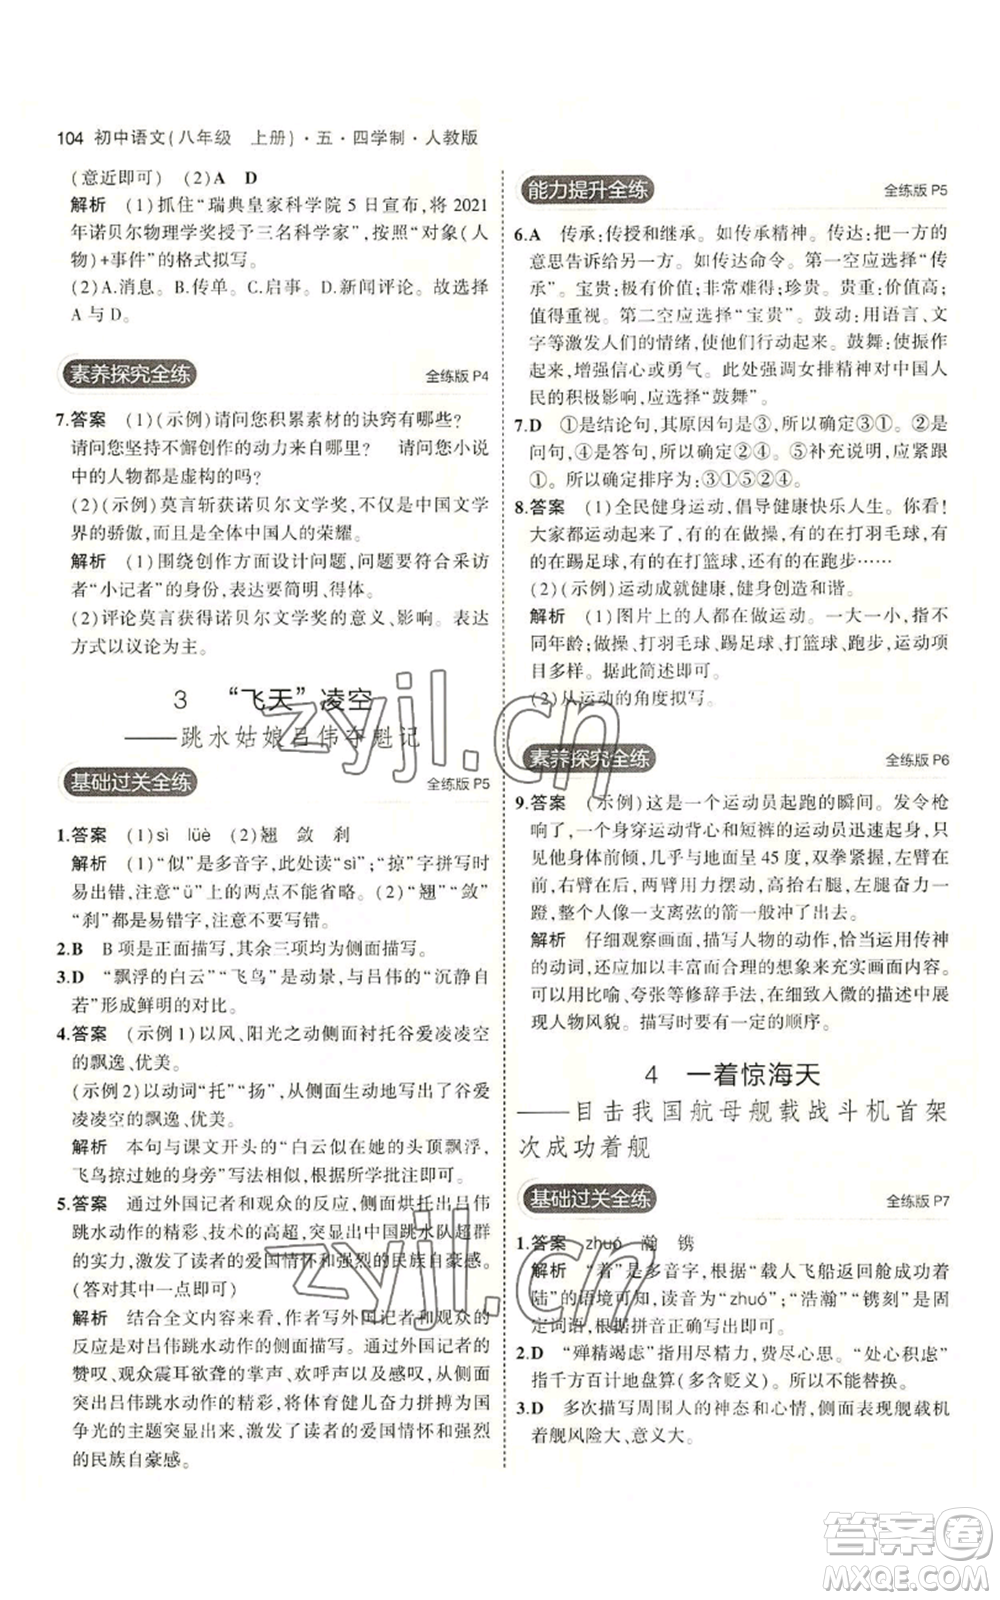 104 初中语文(八年级　上册)·五·四学制·人教版
(意近即可)　(2)A　D
解析　(1)抓住“瑞典皇家科学院 5 日宣布,将 2021
年诺贝尔物理学奖授予三名科学家”,按照“对象(人
物)+事件”的格式拟写。
(2)A.消息。B.传单。C.启事。D.新闻评论。故选择
A 与 D。
素养探究全练　全练版 P4
7.答案　(1)(示例)请问您积累素材的诀窍有哪些?
请问您坚持不懈创作的动力来自哪里?　请问您小说
中的人物都是虚构的吗?
(2)(示例)莫言斩获诺贝尔文学奖,不仅是中国文学
界的骄傲,而且是全体中国人的荣耀。
解析　(1)围绕创作方面设计问题,问题要符合采访
者“小记者”的身份,表达要简明、得体。
(2)评论莫言获得诺贝尔文学奖的意义、影响。表达
方式以议论为主。
3　“飞天”凌空
——跳水姑娘吕伟夺魁记
基础过关全练　全练版 P5
1.答案　(1)sì　lüè　(2)翘　敛　刹
解析　(1)“似”是多音字,此处读“sì”;“掠”字拼写时
易出错,注意“ü”上的两点不能省略。(2)“翘”“敛”
“刹”都是易错字,注意不要写错。
2.B　B 项是正面描写,其余三项均为侧面描写。
3.D　“飘浮的白云”“飞鸟”是动景,与吕伟的“沉静自
若”形成鲜明的对比。
4.答案　(示例 1)以风、阳光之动侧面衬托谷爱凌凌空
的飘逸、优美。
(示例 2)以动词“托”“扬”,从侧面生动地写出了谷爱
凌凌空的飘逸、优美。
解析　本句与课文开头的“白云似在她的头顶飘浮,
飞鸟掠过她的身旁”写法相似,根据提示批注即可。
5.答案　通过外国记者和观众的反应,侧面烘托出吕伟
跳水动作的精彩,技术的高超,突显出中国跳水队超群
的实力,激发了读者的爱国情怀和强烈的民族自豪感。
(答对其中一点即可)
解析　结合全文内容来看,作者写外国记者和观众的
反应是对吕伟跳水动作的侧面描写。通过外国记者的
赞叹、观众震耳欲聋的掌声、欢呼声以及感叹,突出表
现吕伟跳水动作的精彩,将体育健儿奋力拼搏为国
争光的主题突显出来,激发了读者的爱国情怀和强烈
的民族自豪感。
能力提升全练　全练版 P5
6.A　传承:传授和继承。如传承精神。传达:把一方的
意思告诉给另一方。如传达命令。第一空应选择“传
承”。宝贵:极有价值;非常难得;珍贵。贵重:价值高;
值得重视。第二空应选择“宝贵”。鼓动:用语言、文
字等激发人们的情绪,使他们行动起来。鼓舞:使振作
起来,增强信心或勇气。此处强调女排精神对中国人
民的积极影响,应选择“鼓舞”。
7.D　①是结论句,其原因句是③,所以确定③①。②是
问句,④是答句,所以确定②④。⑤补充说明①,应紧跟
①。所以确定排序为:③①⑤②④。
8.答案　(1)全民健身运动,倡导健康快乐人生。你看!
大家都运动起来了,有的在做操,有的在打羽毛球,有
的在踢足球,有的在打篮球,还有的在跑步……
(2)(示例)运动成就健康,健身创造和谐。
解析　(1)图片上的人都在做运动。一大一小,指不
同年龄;做操、打羽毛球、踢足球、打篮球,跑步,运动项
目多样。据此简述即可。
(2)从运动的角度拟写。
素养探究全练　全练版 P6
9.答案　(示例)这是一个运动员起跑的瞬间。发令枪
响了,一个身穿运动背心和短裤的运动员迅速起跑,只
见他身体前倾,几乎与地面呈 45 度,双拳紧握,左臂在
前,右臂在后,两臂用力摆动,高抬右腿,左腿奋力一
蹬,整个人像一支离弦的箭一般冲了出去。
解析　仔细观察画面,描写人物的动作,恰当运用传神
的动词,还应以丰富而合理的想象来充实画面内容。
可以用比喻、夸张等修辞手法,在细致入微的描述中展
现人物风貌。描写时要有一定的顺序。
4　一着惊海天
——目击我国航母舰载战斗机首架
次成功着舰
基础过关全练　全练版 P7
1.答案　zhuó　瀚　镌
解析　“着”是多音字,根据“载人飞船返回舱成功着
陆”的语境可知,读音为“zhuó”;“浩瀚”“镌刻”是固
定词语,根据拼音正确填写即可。
2.D　“殚精竭虑”指用尽精力,费尽心思。“处心积虑”
指千方百计地盘算(多含贬义)。不能互换。
3.D　多次描写周围人的神态和心情,侧面表现舰载机
着舰风险大、意义大。
zyjl.cn
zyjl.cn
答案卷
MXQE.COM